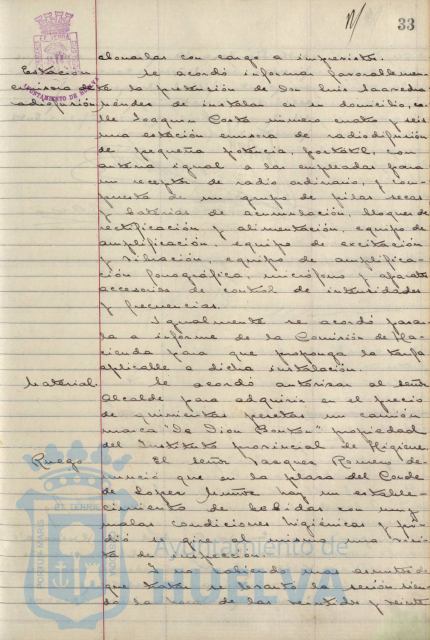 33
abonarlas con cargo a imprevistos.
Estación Se acordó informar favorablemen-
emisora de te la pretensión de Don Luis Saavedra
radiofusión de instalar en su domicilio, ca-
lle Joaquin Costa número cuatro y seis
una estación emisora de radiodifusión
de pequeña potencia, portatil, con
antena igual a las empleadas para
un receptor de radio ordinario, y com-
puesta de un grupo de pilas secas
y baterías de acumulación, bloques de
rectificación y alimentación, equipo de
amplificación, equipo de excitación
y vibración, equipo de amplifica-
ción fonográfica, micrófono y aparatos
accesorios de control de intensidades
y frecuencias.
Igualmente se acordó pasa-
ra a informe de la Comisión de Ha-
cienda para que proponga la tarifa
aplicable a dicha instalación.
Material. Se acordó autorizar al señor
Alcalde para adquirir en el precio
de quinientas pesetas un camión
marca "De Dion Bouton" propiedad
del Instituto provincial de Higiene.
Ruego El señor Vazquez Romero de-
nunció que en la plaza del Conde
de López Muñoz hay un estable-
cimiento de bebidas con muy
malas condiciones higiénicas y pi-
dió se gire al mismo una visi-
ta de inspección.
Y no habiendo mas asuntos de
que tratar se levantó la sesión sien-
do la hora de las veintidos y veinte
AYUNTAMIENTO DE HUELVA
Ayuntamiento de
HUELVA